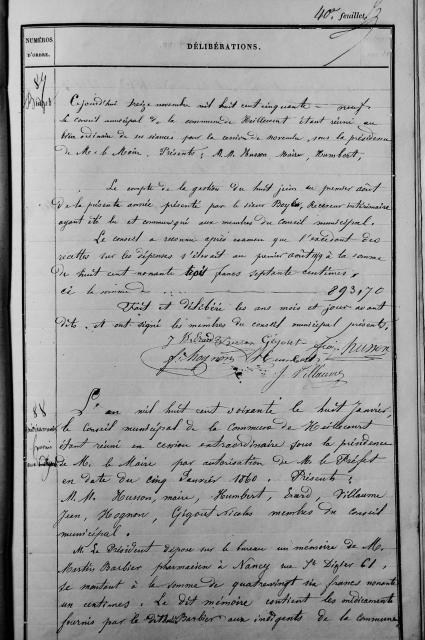 40e feuillet
NUMÉROS
D'ORDRE.
DÉLIBÉRATIONS.
87
Budget
Cejourd'hui seize novembre mil huit cent cinquante-neuf
le conseil municipal de la commune de Heillecourt étant réuni au
lieu ordinaire de ses séances pour la cession de novembre, sous la présidence
de Mr le Maire. Présents : M.M. Husson Maire, Humbert,
Le compte de la gestion du huit juin au premier août
de la présente année, présenté par le sieur Receveur intérimaire
ayant été lu et communiqué aux membres du Conseil municipal.
Le conseil a reconnu après examen que l'excédant des
recettes sur les dépenses s'élevait au premier août à la somme
de huit cent nonante trois francs septante centimes,
ci la somme de 893,70
Fait et délibéré les ans mois et jour avant
dits, et ont signé les membres du conseil municipal présents,
Gigout
husson
Hognon
J Villaume
88
L'an mil huit cent soixante le huit Janvier,
le Conseil municipal de la Commune de Heillecourt
étant réuni en cession extraordinaire sous la présidence
de M. le Maire par autorisation de M. le Préfet
en date du cinq Janvier 1860. Présents :
M.M. Husson, maire, Humbert, Erard, Villaume
Jean, Hognon, Gigout Nicolas membres du conseil
municipal.
M. Le Président dépose sur le bureau un mémoire de M.
Barbier pharmacien à Nancy rue St Dizier 61,
se montant à la somme de quatrevingt six francs nonante
un centimes. Le dit mémoire contient les médicaments
fournis par le dit Barbier aux indigents de la commune